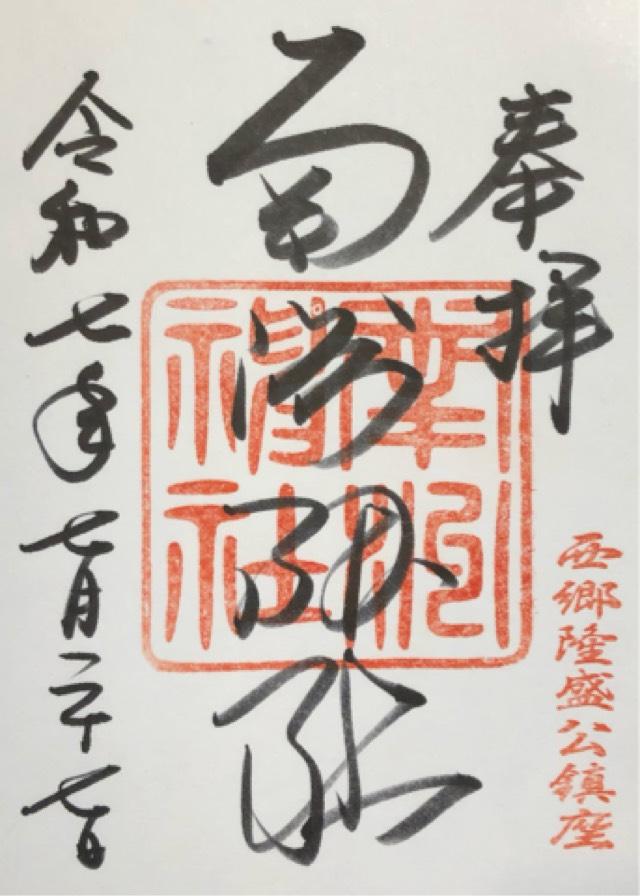 奉拝
西郷隆盛公鎮座
南洲神社
南洲神社
令和七年七月二十七日